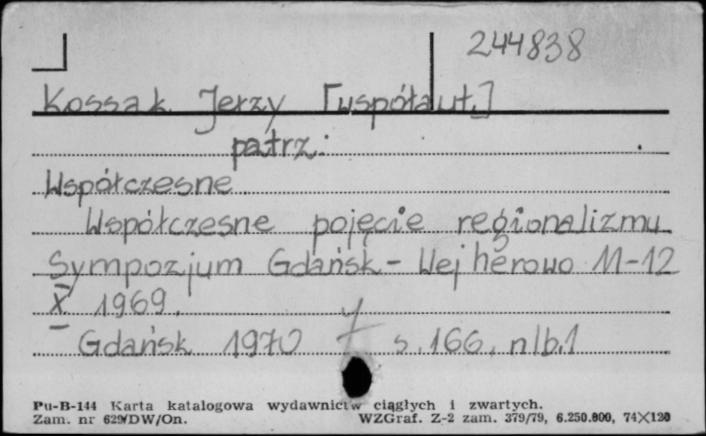 244838
Kossak Jerzy [współaut.]
patrz:
Współczesne
Współczesne pojęcie regionalizmu
Sympozjum Gdańsk - Wejherowo 11-12
X 1969.
Gdańsk 1970 s. 166, nlb. 1
Pu-B-144 Karta katalogowa wydawnictw ciągłych i zwartych.
Zam. nr 629/DW/On. WZGraf. Z-2 zam. 379/79, 6.250.000, 74X120